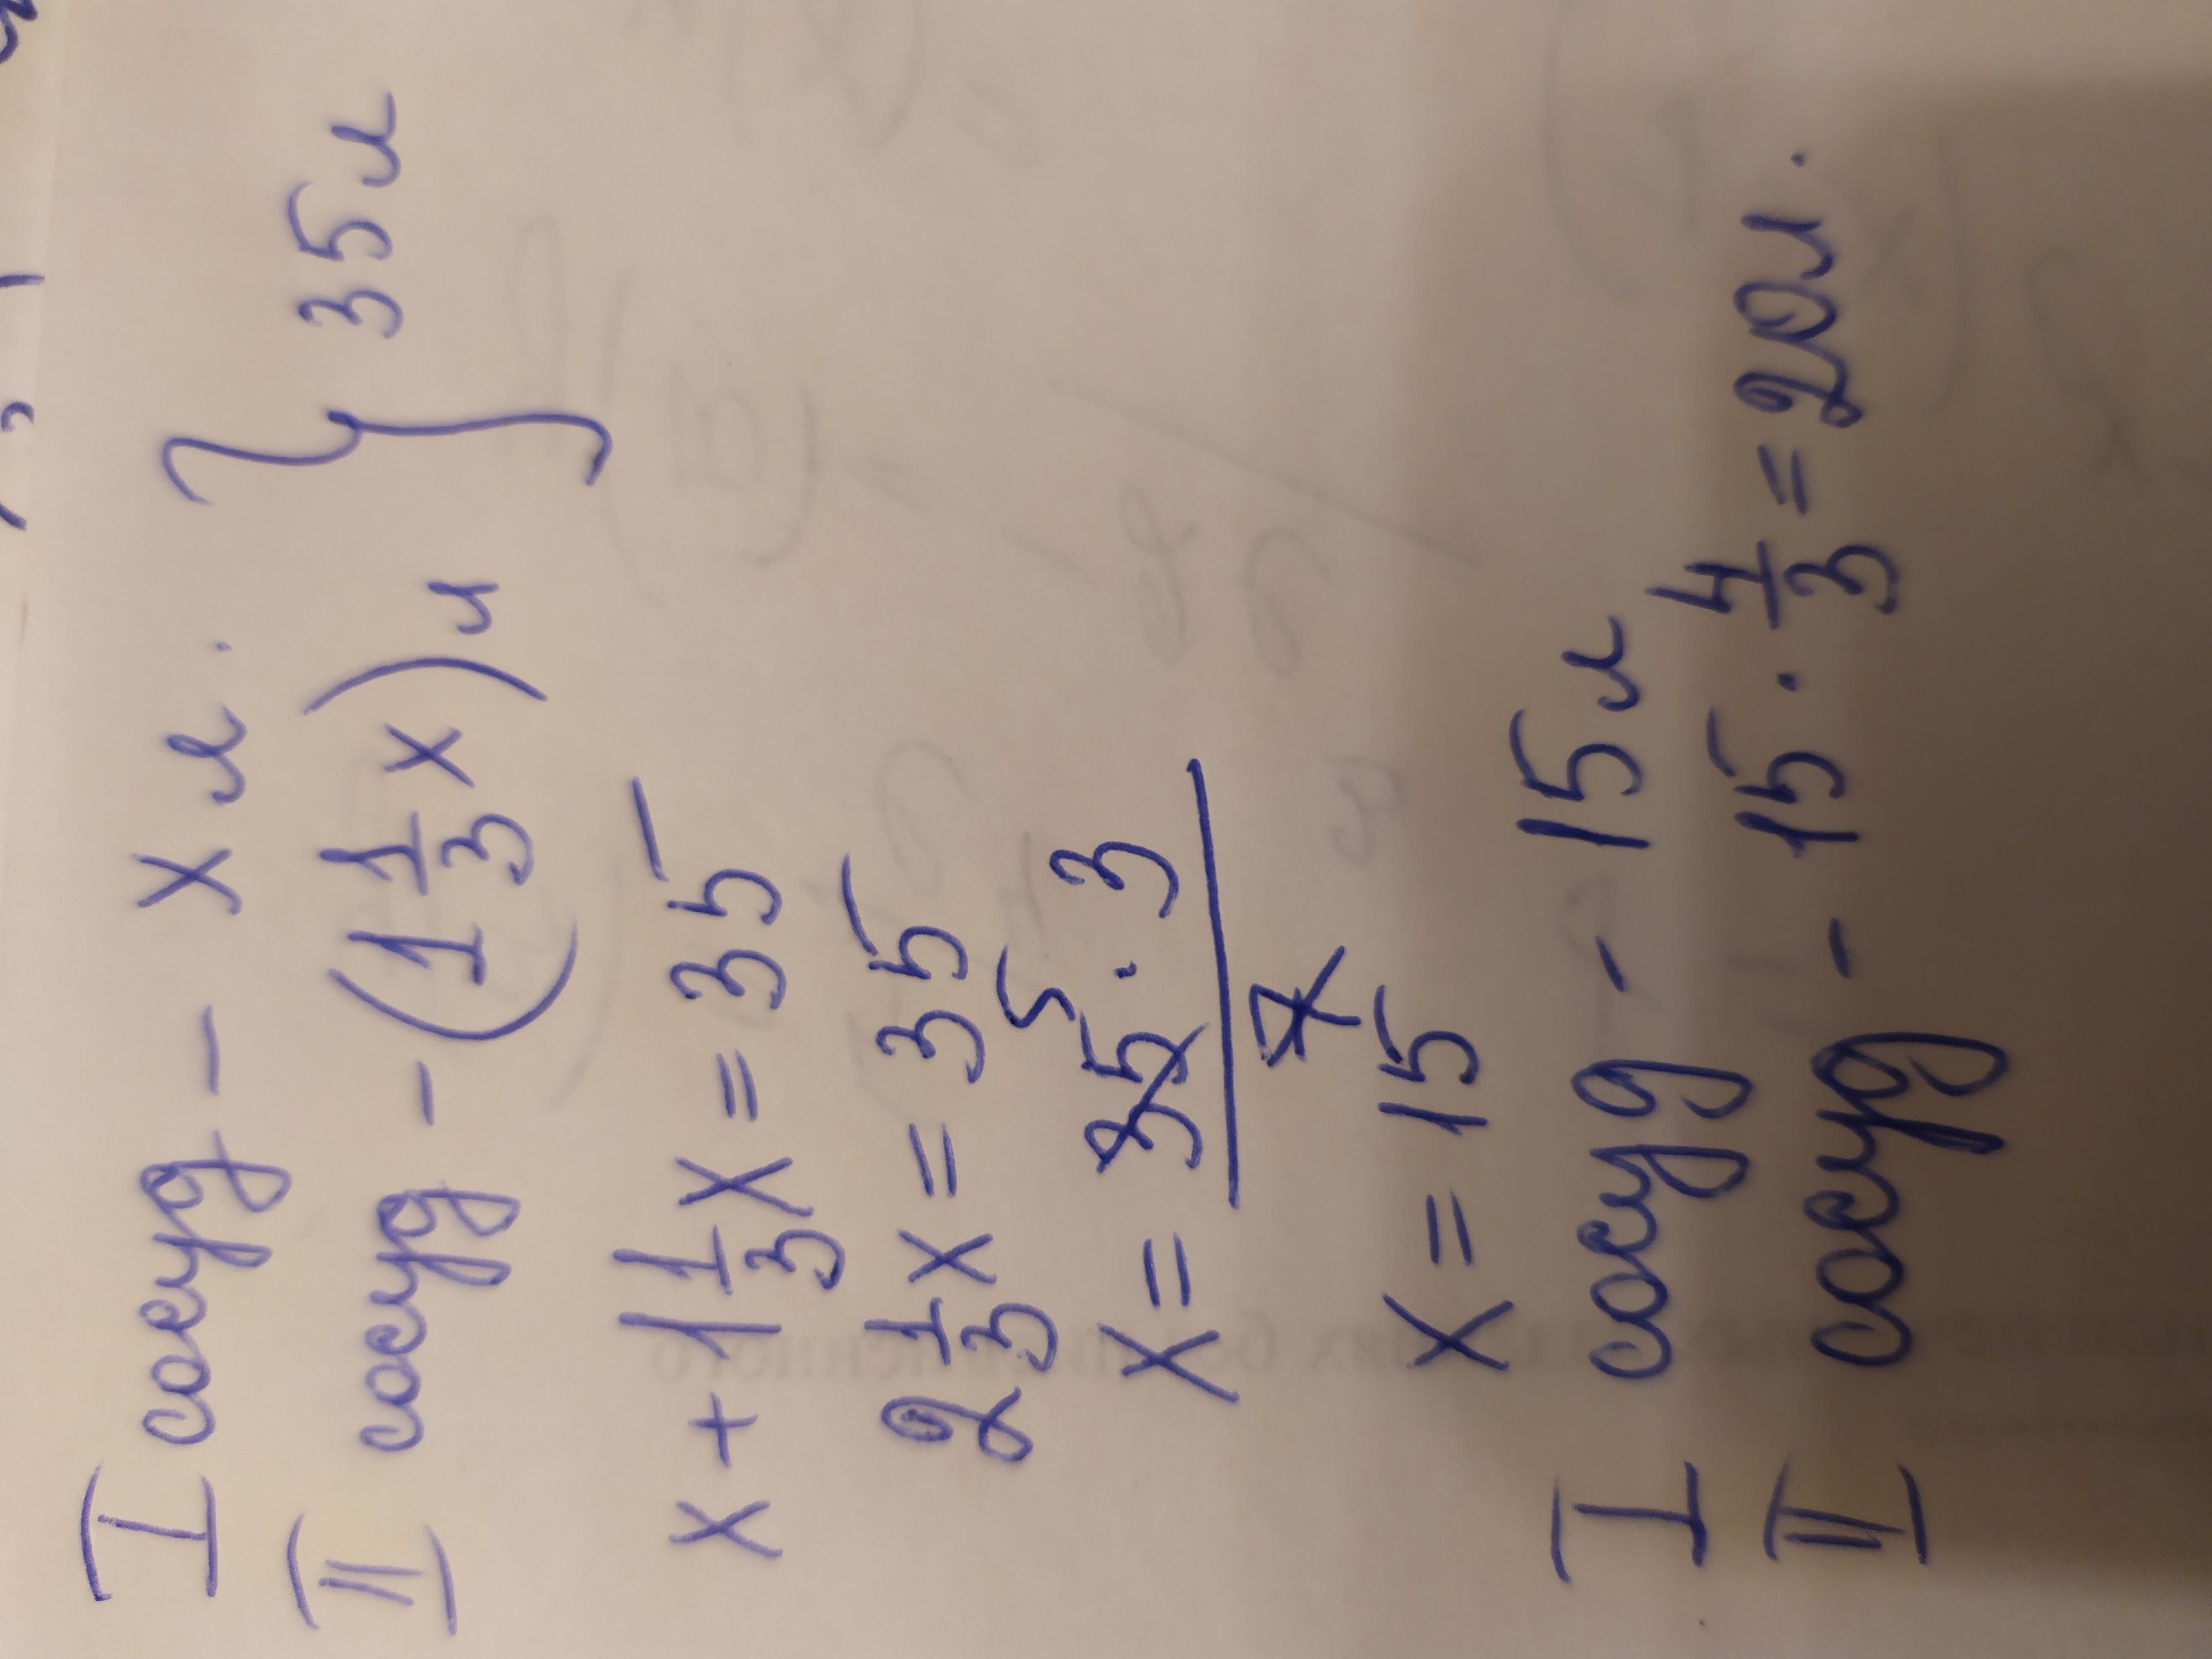 I сосуд – x л. } 35 л
II сосуд – (1 1/3 x) л
x + 1 1/3 x = 35
2 1/3 x = 35
x = 35 5 · 3 / 7
x = 15
I сосуд – 15 л
II сосуд – 15 · 4/3 = 20 л.